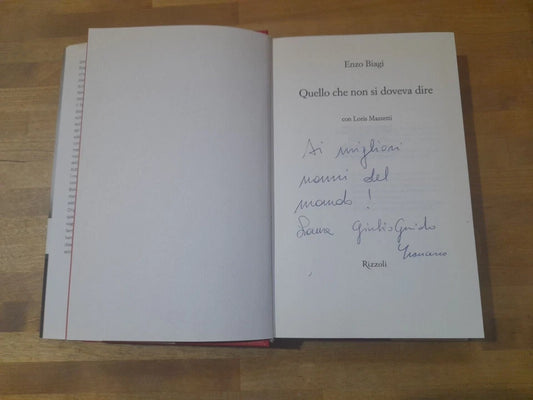 Enzo Biagi
Quello che non si doveva dire
con Loris Mazzetti
Ai migliori
nonni del
mondo!
Laura Giulio Guido
Rizzoli